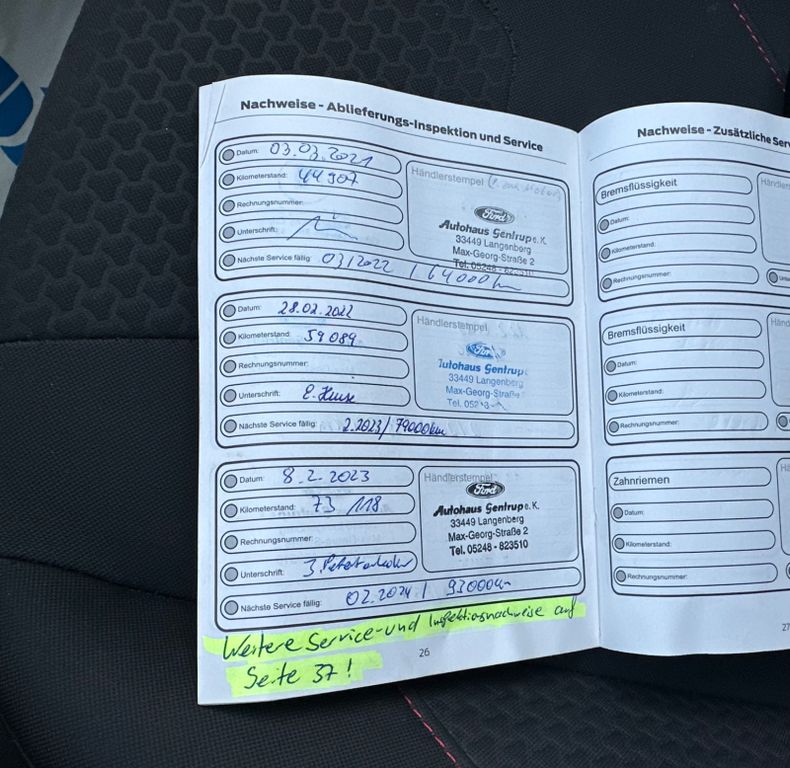 Nachweise - Ablieferungs-Inspektion und Service
Datum: 03.03.2021
Kilometerstand: 44907
Rechnungsnummer:
Unterschrift:
Nächste Service fällig: 03/2022 / 64000km
Händlerstempel
Ford
Autohaus Sentrup e. K.
33449 Langenberg
Max-Georg-Straße 2
Tel. 05248 - 823510
Datum: 28.02.2022
Kilometerstand: 59089
Rechnungsnummer:
Unterschrift:
Nächste Service fällig: 2.2023/ 79000km
Händlerstempel
Ford
Autohaus Sentrup
33449 Langenberg
Max-Georg-Straße
Tel.
Datum: 8.2.2023
Kilometerstand: 73 118
Rechnungsnummer:
Unterschrift:
Nächste Service fällig: 02.2024 / 93000km
Händlerstempel
Ford
Autohaus Sentrup e. K.
33449 Langenberg
Max-Georg-Straße 2
Tel. 05248 - 823510
Weitere Service- und Inspektionsnachweise auf
Seite 37!
26
Nachweise - Zusätzliche Serv
Bremsflüssigkeit
Datum:
Kilometerstand:
Rechnungsnummer:
Bremsflüssigkeit
Datum:
Kilometerstand:
Rechnungsnummer:
Zahnriemen
Datum:
Kilometerstand:
Rechnungsnummer:
27